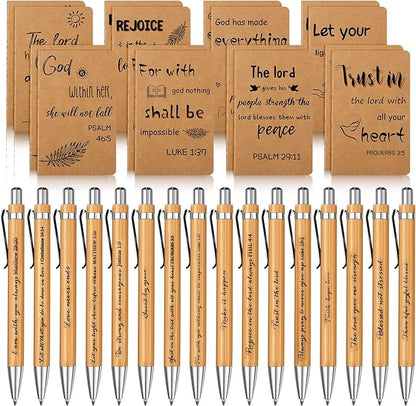 The lord
REJOICE
God has made
everything
Let your
God
WITHIN HER,
she will not fall
PSALM
46:5
For with
god nothing
shall be
impossible
LUKE 1:37
The lord
gives his
people strength the
lord blesses them with
peace
PSALM 29:11
Trust in
the lord with
all your
heart
PROVERBS 3:5
I am with you always Matthew 28:20
Let all that you do be done in love
Love never ends
Let your light shine before others MATTHEW 5:16
Be strong and courageous Joshua 1:9
Saved by grace
Trust in the lord with all your heart PROVERBS 3:5
Make it happen
Rejoice in the lord always PHIL 4:4
Trust in the lord
Always pray & never give up LUKE 18:1
Faith hope love
The lord gave me strength
Blessed not stressed
Thankful for blessed